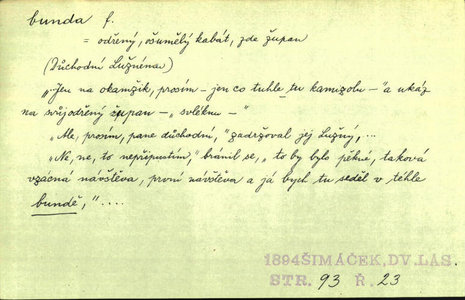 bunda f.
= odřený, ošumělý kabát, zde župan
(Důchodní Lužnéna)
"Jen na okamžik, prosím – jen co tuhle tu kamizolu –" a ukáz
na svůj odřený župan – "svléknu –"
"Ale, prosím, pane důchodní," zadržoval jej Lužný, ...
"Ne, ne, to nepřipustím," bránil se, "to by bylo pěkné, taková
vzácná návštěva, první návštěva a já bych tu seděl v téhle
bundě," ....
1894 ŠIMÁČEK, DV. LÁS.
STR. 93 Ř. 23